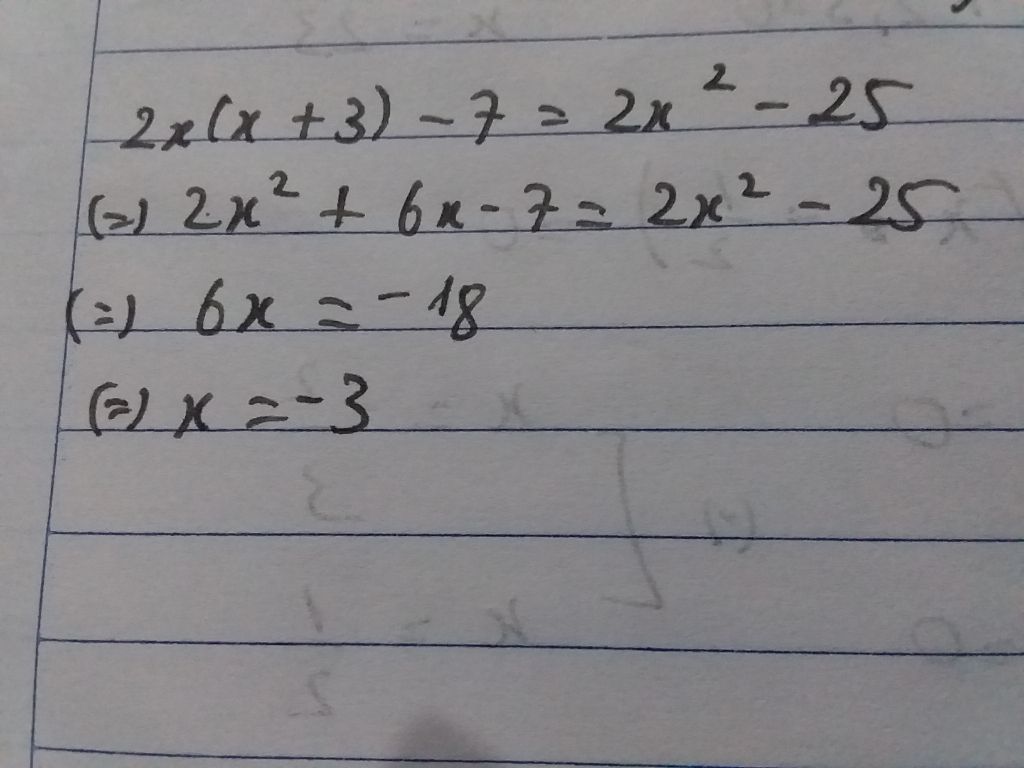 2x(x + 3) - 7 = 2x² - 25
(=) 2x² + 6x - 7 = 2x² - 25
(=) 6x = - 18
(=) x = - 3